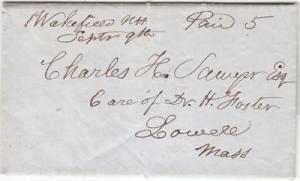 Wakefield NH Paid 5
Septr 9th
Charles H. Sawyer Esq
Care of Dr. H. Foster
Lowell
Mass